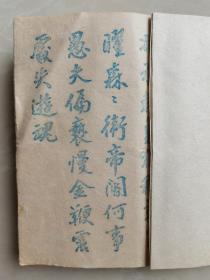 曜森〻衛帝閽何事
愚夫偏褻慢金鞭震
處失遊魂